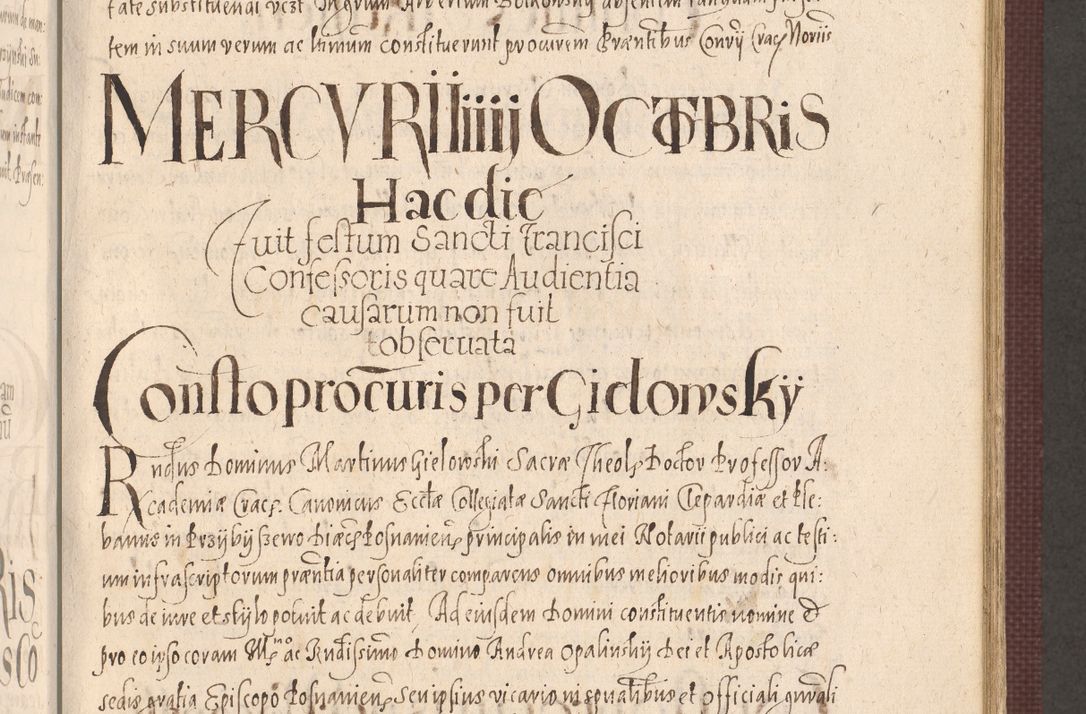 tate substituendi vczt
tem in suum verum ac ltimum constituerunt procurem Præntibus Conrij Crac Noriis
MERCVRII iiiij OCTOBRIS
Hac die
Fuit festum Sancti Francisci
Confessoris quare Audientia
causarum non fuit
obseruata
Consto procuris per Gielowskij
Rndus Dominus Martinus Gielowski Sacræ Theol Doctor Professor A:
Xcademiæ Crac: Canonicus Eccłæ Collegiatæ Sancti Floriani Clepardiæ et Ple:
banus in Przijbijszewo Diæc Posnanien principalis in mei Notarij publici ac testi:
um infrascriptorum præntia personaliter comparens omnibus melioribus modis qui:
bus de iure et stijlo potuit ac debuit, Ad eiusdem Domini constituentis nomine &
pro eo ipso coram Illo ac Rndissimo Domino Andrea Opalinskij Dei et Apostolicæ
sedis gratia Episcopo Posnanien seu ipsius vicario in spualibus et officiali gnrali